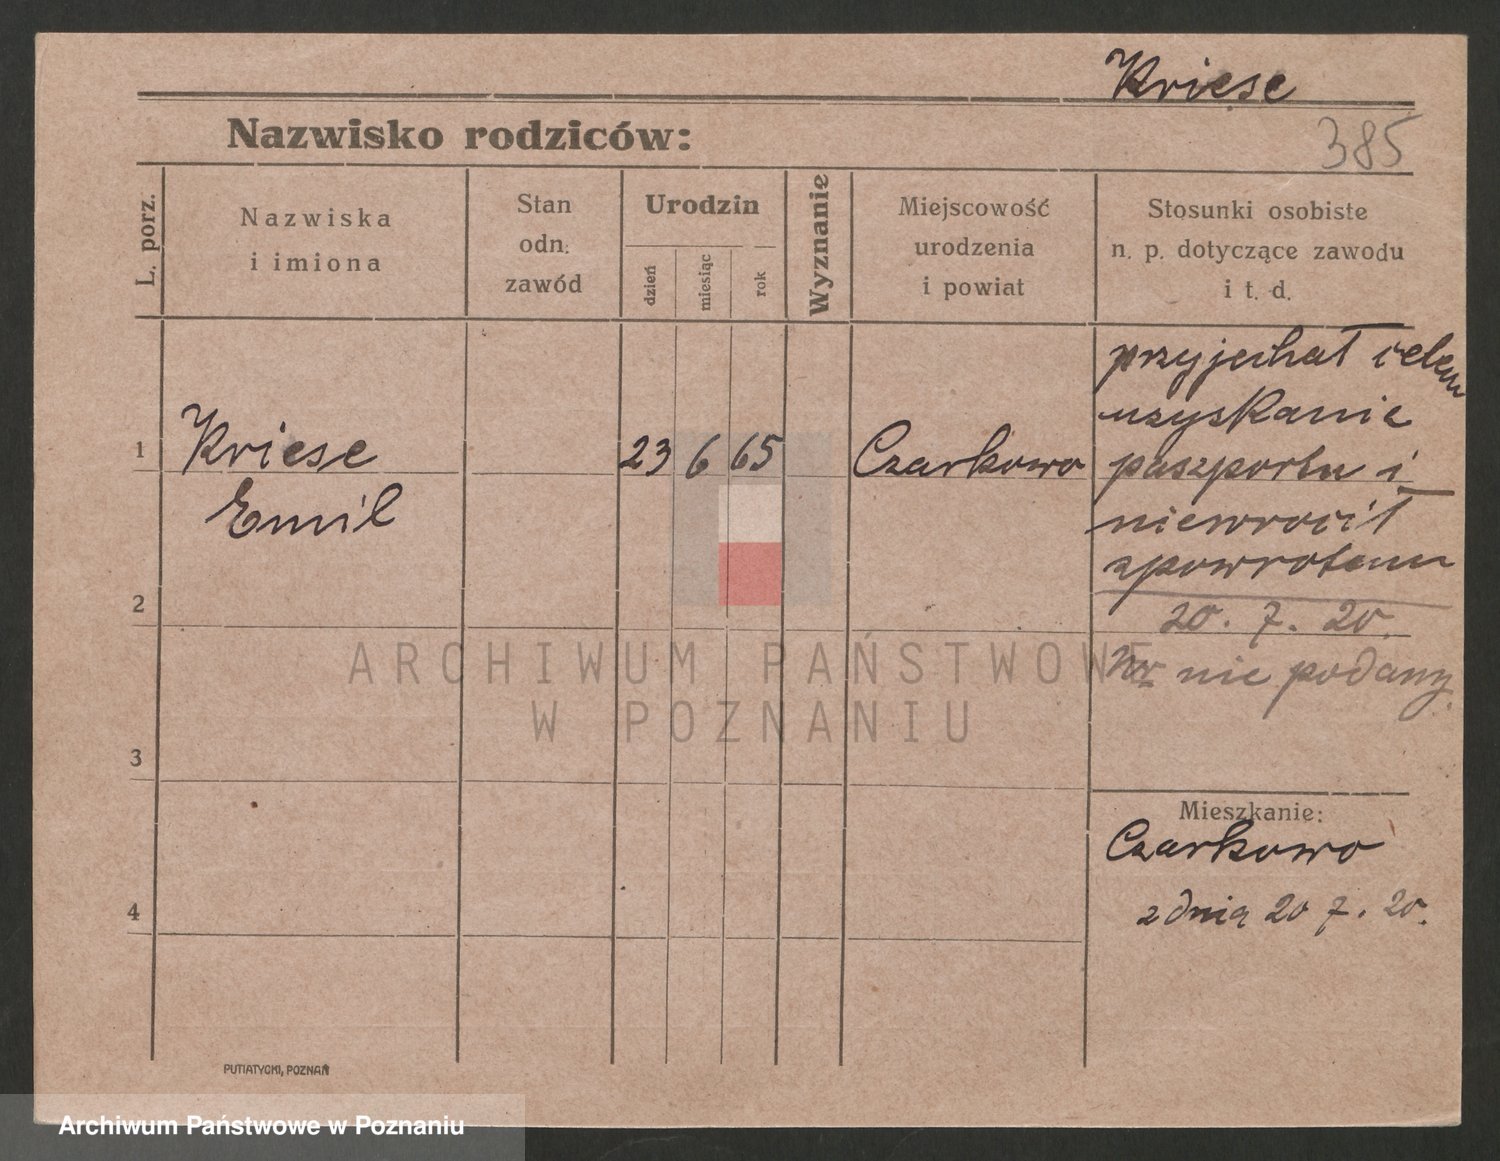 Kriese
Nazwisko rodziców:
385
L. porz.
Nazwiska
i imiona
Stan
odn.
zawód
Urodzin
dzień
miesiąc
rok
Wyznanie
Miejscowość
urodzenia
i powiat
Stosunki osobiste
n. p. dotyczące zawodu
i t. d.
1
Kriese
Emil
23 6 65
Czarkowo
przyjechał celem
uzyskanie
paszportu i
niewrócił
zpowrotem
20. 7. 20.
Nr nie podany.
2
3
4
Mieszkanie:
Czarkowo
z dnia 20 7. 20.
ARCHIWUM PAŃSTWOWE
W POZNANIU
PUTIATYCKI, POZNAŃ
Archiwum Państwowe w Poznaniu